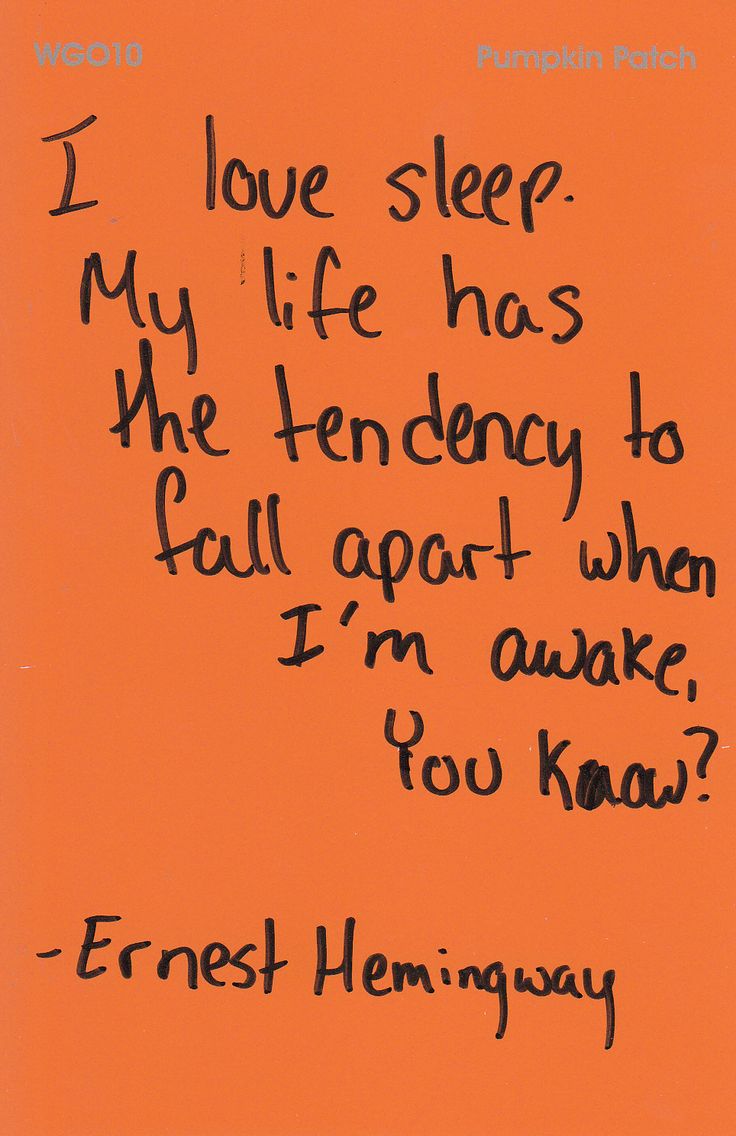 WGO10 Pumpkin Patch
I love sleep.
My life has
the tendency to
fall apart when
I'm awake,
you know?
-Ernest Hemingway